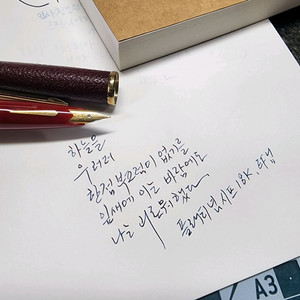 하늘을
우러러
한점 부끄럼이 없기를
잎새에 이는 바람에도
나는 괴로워했다
플래티넘 시프 18K, 타넵
A3